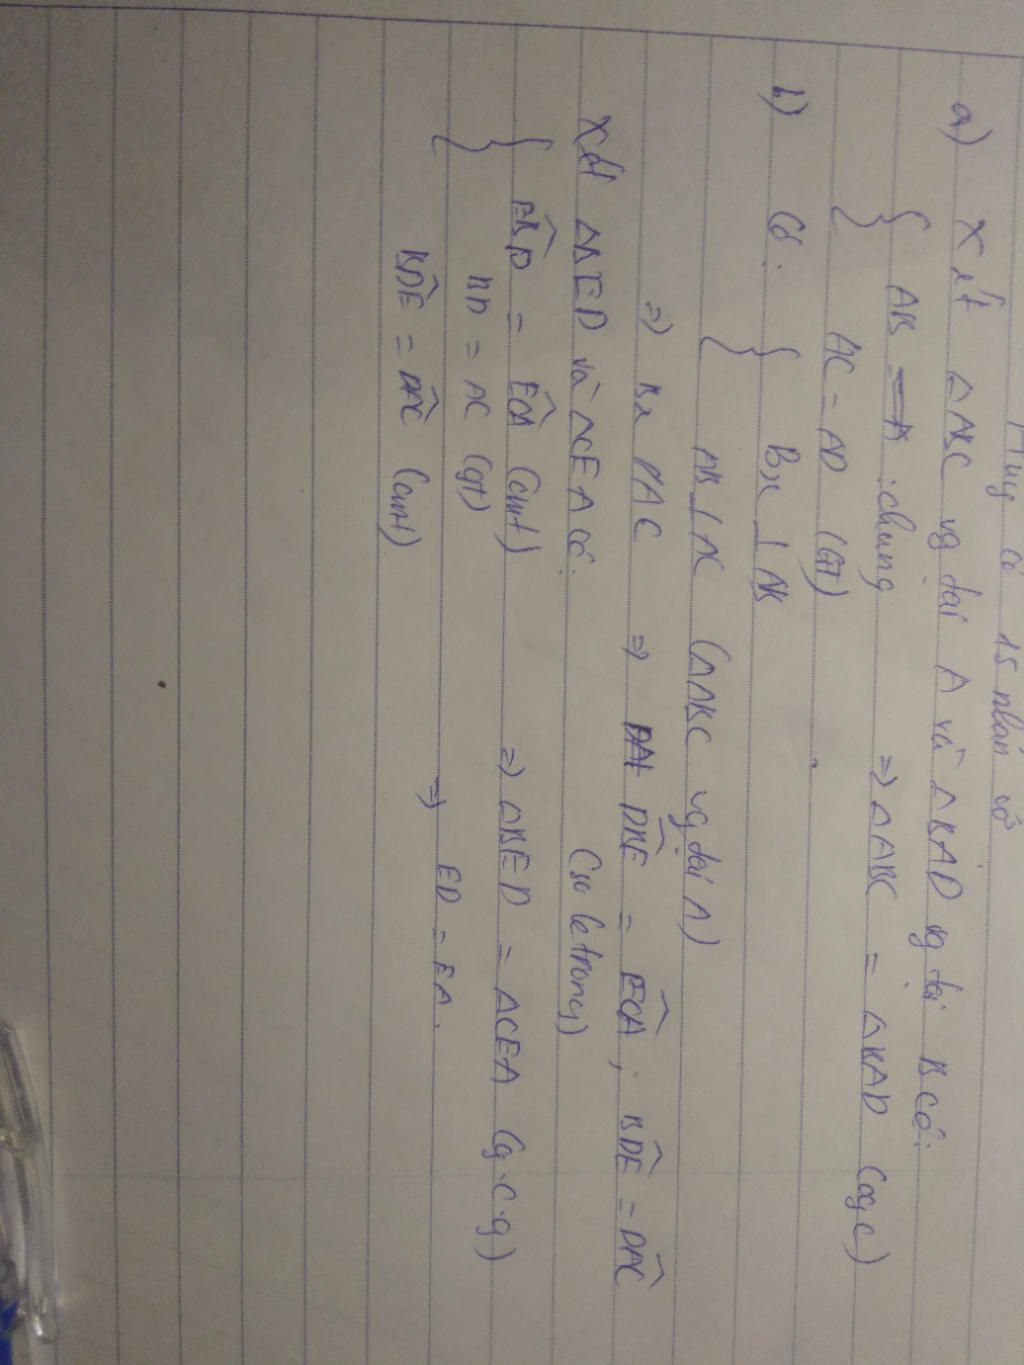 có 15 nhãn vở
a) Xét △ABC vg tại A và △BAD vg tại B có:
{ AB chung
AC = AD (GT) ⇒ △ABC = △BAD (cgc)
b) Có: { Bx ⊥ AB
AB ⊥ AC (△ABC vg tại A)
⇒ Bx // AC ⇒ DBE = ECA ; BDE = DAC
(so le trong)
Xét △BED và △CEA có:
{ EBD = ECA (cmt)
BD = AC (gt) ⇒ △BED = △CEA (g.c.g)
BDE = DAC (cmt) ⇒ ED = EA.